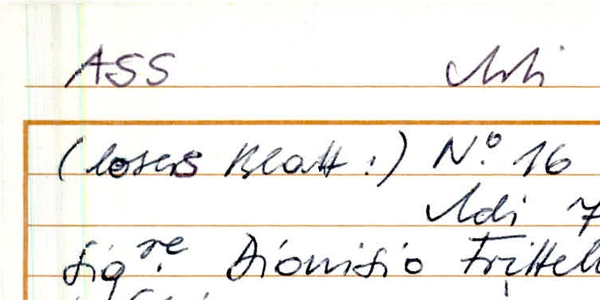 ASS Adi
(loses Blatt!) No. 16
Adi 7
Sig.re Dionisio Frittell